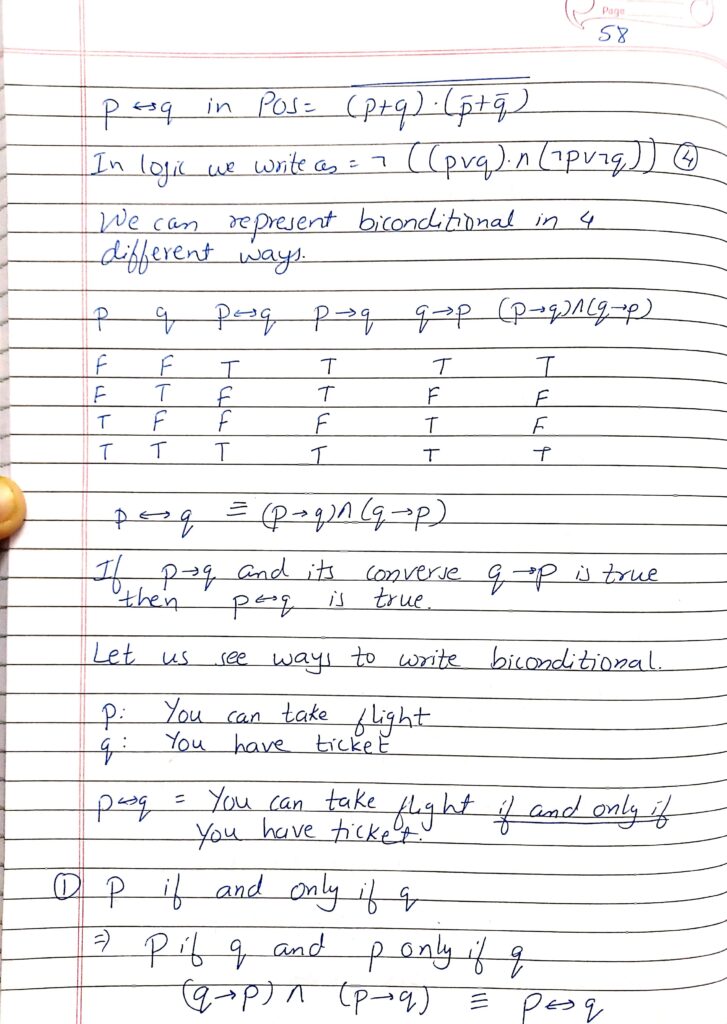 Page
58
p ↔ q in POS = (p+q)·(p̄+q̄)
In logic we write as = ¬ ((p∨q).∧(¬p∨¬q)) ④
We can represent biconditional in 4
different ways.
p q p↔q p→q q→p (p→q)∧(q→p)
F F T T T T
F T F T F F
T F F F T F
T T T T T T
p ↔ q ≡ (p→q)∧(q→p)
If p→q and its converse q→p is true
then p↔q is true.
Let us see ways to write biconditional.
p: You can take flight
q: You have ticket
p↔q = You can take flight if and only if
You have ticket.
① P if and only if q
⇒ P if q and p only if q
(q→p) ∧ (p→q) ≡ p↔q